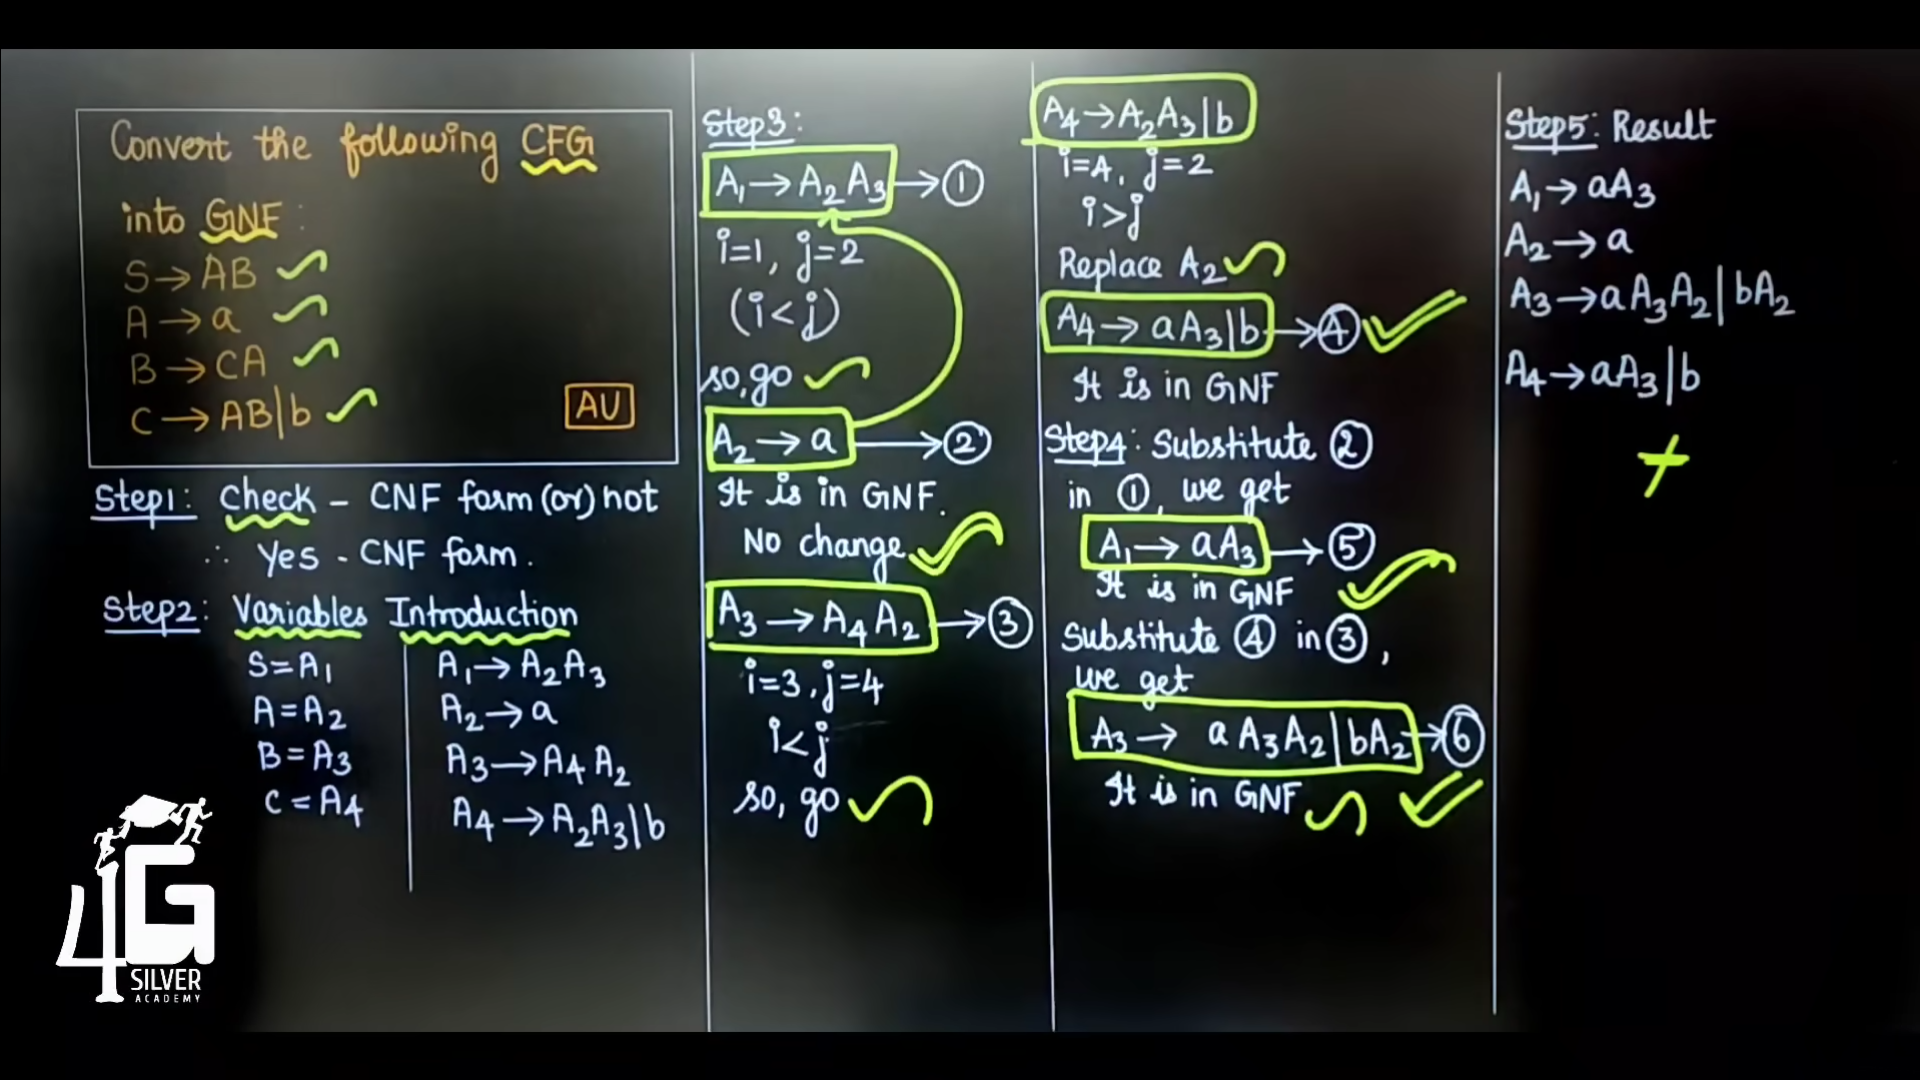 Convert the following CFG
into GNF :
S → AB
A → a
B → CA
C → AB|b
AU
Step1: Check - CNF form (or) not
∴ Yes - CNF form.
Step2: Variables Introduction
S=A₁
A=A₂
B=A₃
C=A₄
A₁→A₂A₃
A₂→a
A₃→A₄A₂
A₄→A₂A₃|b
4G
SILVER
ACADEMY
Step3:
A₁→A₂A₃ → ①
i=1, j=2
(i<j)
so, go
A₂→a → ②
It is in GNF.
No change
A₃→A₄A₂ → ③
i=3, j=4
i<j
so, go
A₄→A₂A₃|b
i=4, j=2
i>j
Replace A₂
A₄→aA₃|b → ④
It is in GNF
Step4: Substitute ②
in ①, we get
A₁→aA₃ → ⑤
It is in GNF
Substitute ④ in ③,
we get
A₃→ aA₃A₂|bA₂ → ⑥
It is in GNF
Step5: Result
A₁→aA₃
A₂→a
A₃→aA₃A₂|bA₂
A₄→aA₃|b